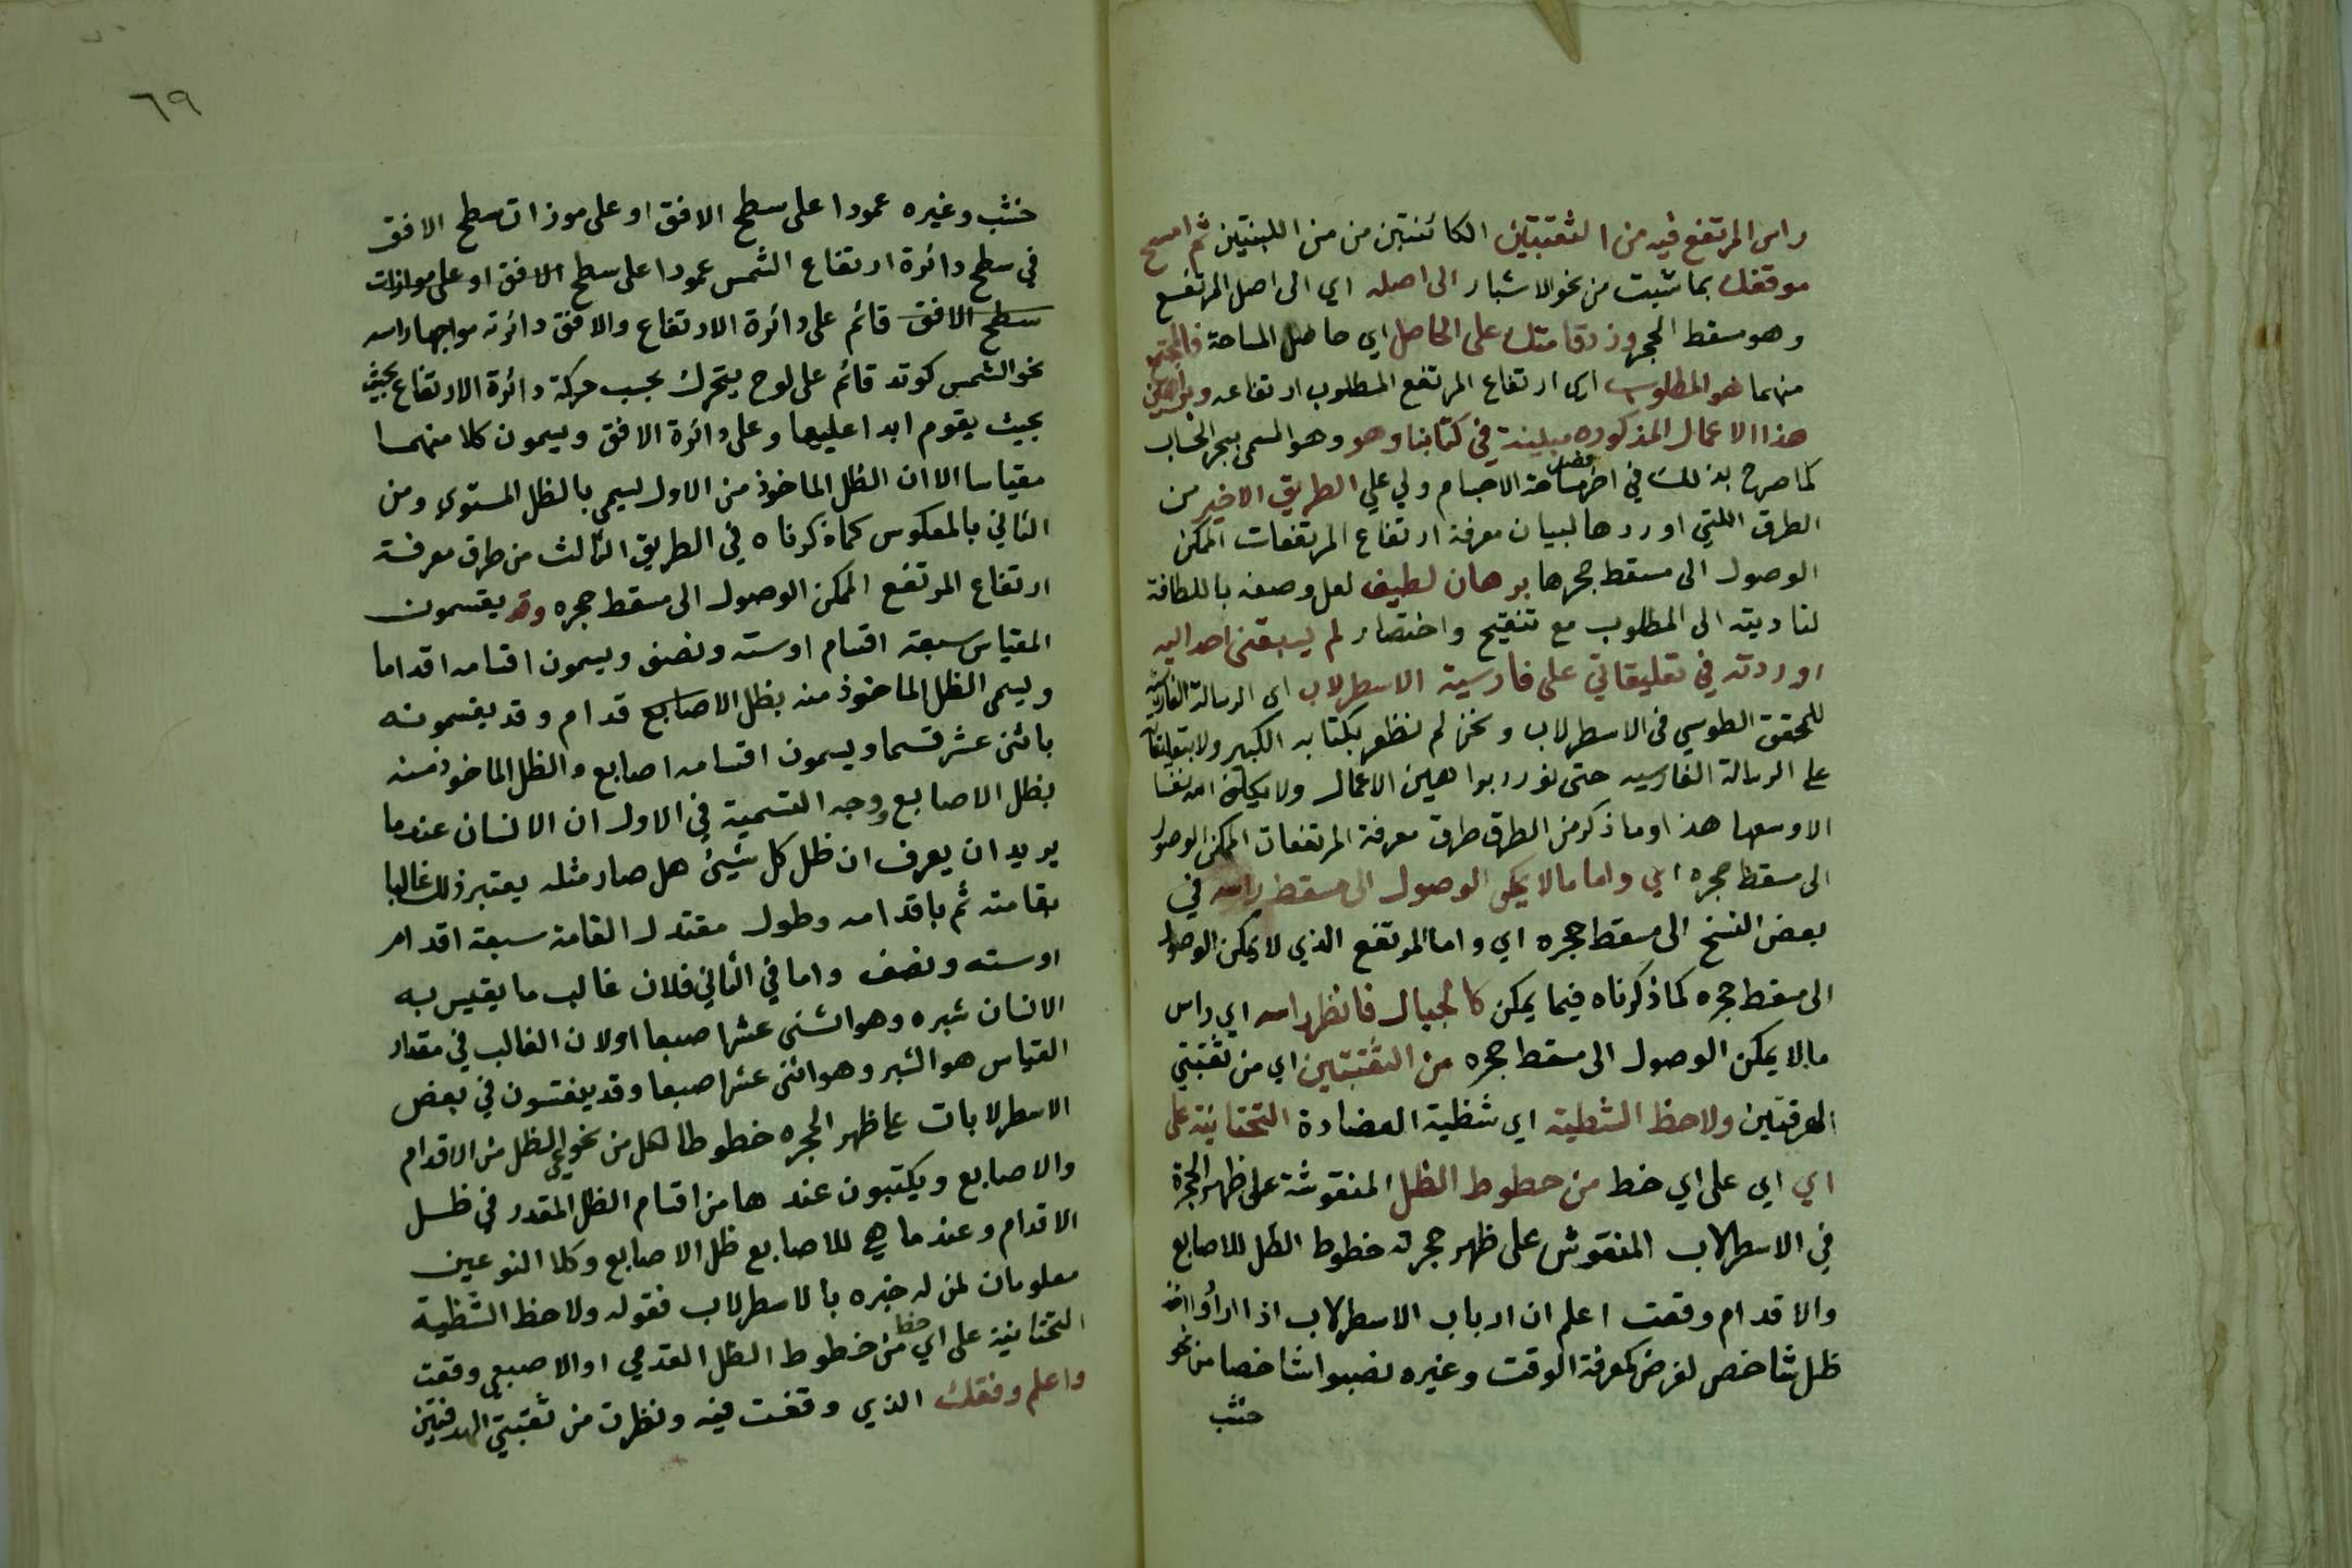 راس المرتفع فيه من الثقبتين الكائنتين من من اللبنتين ثم امسح
موقفك بما شيت من نحو الاشبار الى اصله اي الى اصل المرتفع
وهو مسقط الحجر وزد قامتك على الحاصل اي حاصل المساحة فالمجتمع
منهما هو المطلوب اي ارتفاع المرتفع المطلوب ارتفاعه وبراهين
هذا الاعمال المذكوره مبينة في كتابنا وهو وهو المسمى ببحر الحساب
كما صرح بذلك في اخر مساحة الاجسام ولي على الطريق الاخير من
الطرق اللتي اوردها لبيان معرفة ارتفاع المرتفعات الممكن
الوصول الى مسقط حجرها برهان لطيف لعل وصفه باللطافة
لتاديته الى المطلوب مع تنقيح واختصار لم يسبقنى احد اليه
اوردته في تعليقاتي على فارسية الاسطرلاب اي الرسالة الفارسية
للمحقق الطوسي فى الاسطرلاب ونحن لم نظفر بكتابه الكبير ولا بتعليقاته
على الرسالة الفارسيه حتى نورد براهين الاعمال ولا يكلف الله نفسا
الا وسعها هذا وما ذكر من الطرق طرق معرفة المرتفعات الممكن الوصول
الى مسقط حجره اي واما ما لا يمكن الوصول الى مسقط راسه في
بعض النسخ الى مسقط حجره اي واما المرتفع الذي لا يمكن الوصول
الى مسقط حجره كما ذكرناه فيما يمكن كالجبال فانظر راسه اي راس
ما لا يمكن الوصول الى مسقط حجره من الثقبتين اي من ثقبتي
الهدفتين ولاحظ الشظية اي شظية العضادة التحتانية على
اي اي على اي خط من خطوط الظل المنقوشة على ظهر الحجرة
في الاسطرلاب المنقوش على ظهر حجرته خطوط الظل للاصابع
والاقدام وقعت اعلم ان ارباب الاسطرلاب اذا ارادوا اخذ
ظل شاخص لغرض كمعرفة الوقت وغيره نصبوا شاخصا من نحو
خشب
٦٩
خشب وغيره عمودا على سطح الافق او على موزات سطح الافق
في سطح دائرة ارتفاع الشمس عمودا على سطح الافق او على موازات
سطح الافق قائم على دائرة الارتفاع والافق دائرته مواجها راسه
نحو الشمس كوتد قائم على لوح يتحرك بحسب حركة دائرة الارتفاع بحيث
بحيث يقوم ابدا عليها وعلى دائرة الافق ويسمون كلا منهما
مقياسا الا ان الظل الماخوذ من الاول يسمى بالظل المستوي ومن
الثاني بالمعكوس كما ذكرناه في الطريق الثالث من طرق معرفة
ارتفاع المرتفع الممكن الوصول الى مسقط حجره وقد يقسمون
المقياس سبعة اقسام او سته ونصف ويسمون اقسامه اقداما
ويسمى الظل الماخوذ منه بظل الاصابع قدام وقد يقسمونه
باثنى عشر قسما ويسمون اقسامه اصابع والظل الماخوذ منه
بظل الاصابع ووجه التسمية في الاول ان الانسان عندما
يريد ان يعرف ان ظل كل شيئ هل صار مثله يعتبر ذلك غالبا
بقامته ثم باقدامه وطول معتدل القامة سبعة اقدام
او سته ونصف واما في الثاني فلان غالب ما يقيس به
الانسان شبره وهو اثنى عشر اصبعا او لان الغالب في مقدار
القياس هو الشبر وهو اثنى عشر اصبعا وقد ينقشون في بعض
الاسطرلابات على ظهر الحجره خطوطا لكل من نحوعي الظل من الاقدام
والاصابع ويكتبون عندها من اقسام الظل المقدر في ظل
الاقدام وعند ما هي للاصابع ظل الاصابع وكلا النوعين
معلومان لمن له خبره بالاسطرلاب فقوله ولاحظ الشظية
التحتانية على اي خط من خطوط الظل القدمي او الاصبعي وقعت
واعلم وفقك الذي وقفت فيه ونظرت من ثقبتي الهدفتين